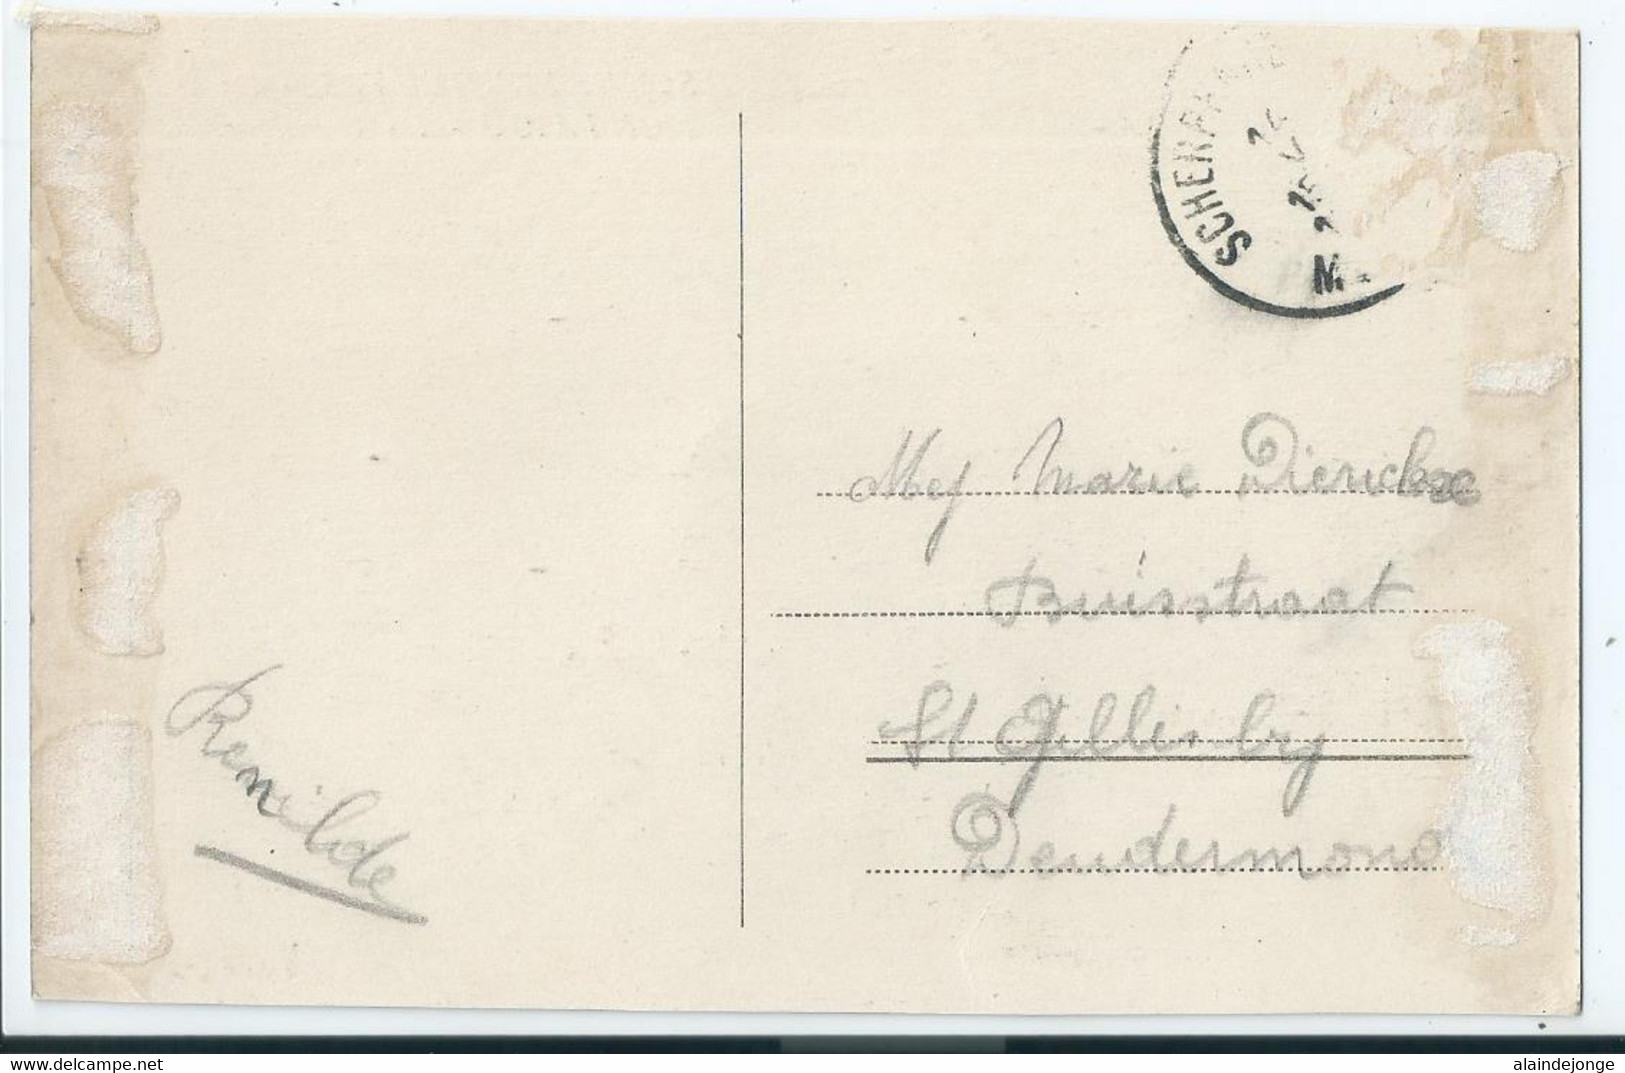 SCHERP
14
M
Mej Marie Dierickx
Buisstraat
St Gillis by
Dendermond
Renilde
www.delcampe.net
alaindejonge